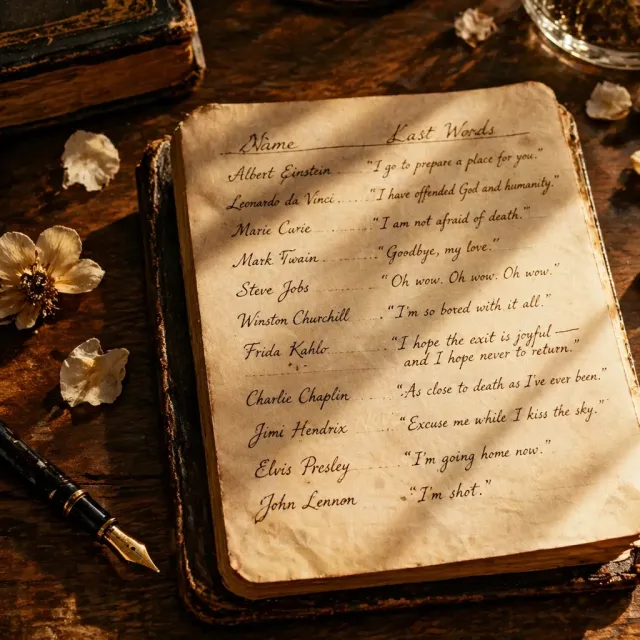 Name Last Words
Albert Einstein "I go to prepare a place for you."
Leonardo da Vinci "I have offended God and humanity."
Marie Curie "I am not afraid of death."
Mark Twain "Goodbye, my love."
Steve Jobs "Oh wow. Oh wow. Oh wow."
Winston Churchill "I'm so bored with it all."
Frida Kahlo "I hope the exit is joyful —
and I hope never to return."
Charlie Chaplin "As close to death as I've ever been."
Jimi Hendrix "Excuse me while I kiss the sky."
Elvis Presley "I'm going home now."
John Lennon "I'm shot."